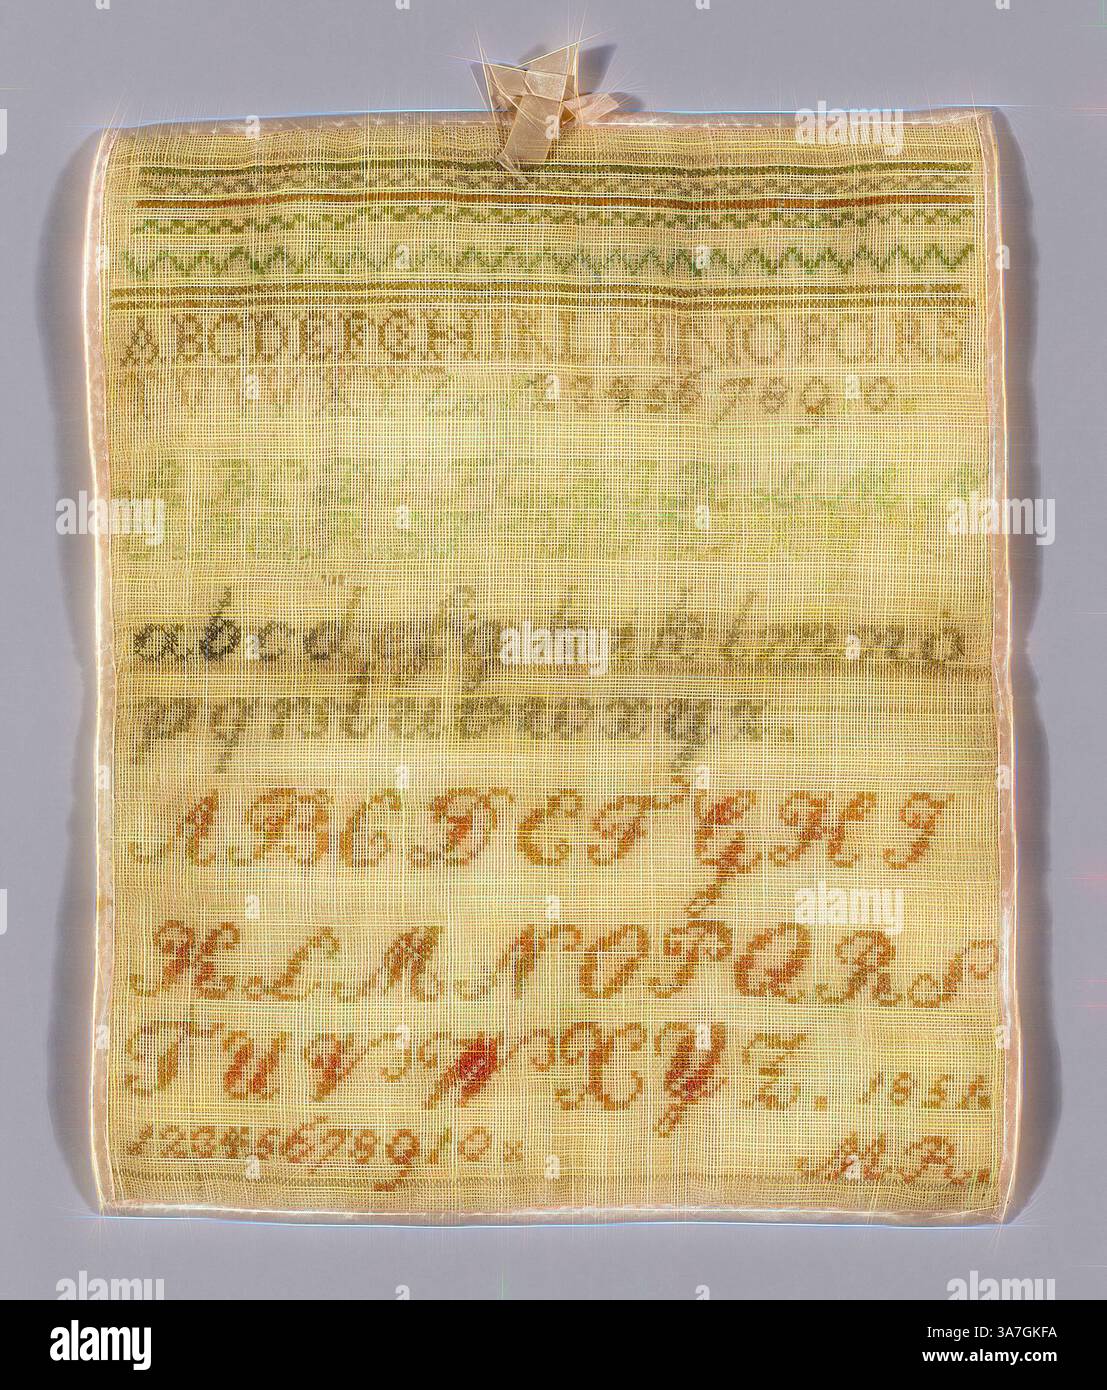 A B C D E F G H I K L M N O P Q R S
T U V W X Y Z 1 2 3 4 5 6 7 8 9 0.
a b c d e f g h i k l m n o
p q r s t u v w x y z.
A B C D E F G H I
K L M N O P Q R S
T U V W X Y Z. 1851.
1 2 3 4 5 6 7 8 9 10 x
M. R.
alamy
Image ID: 3A7GKFA
www.alamy.com